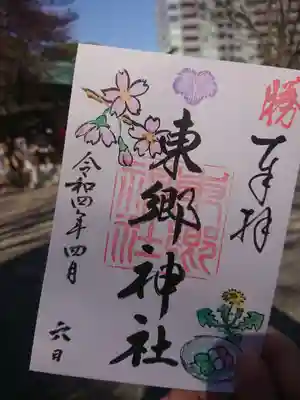 勝
奉拝
東郷神社
令和四年四月
六日